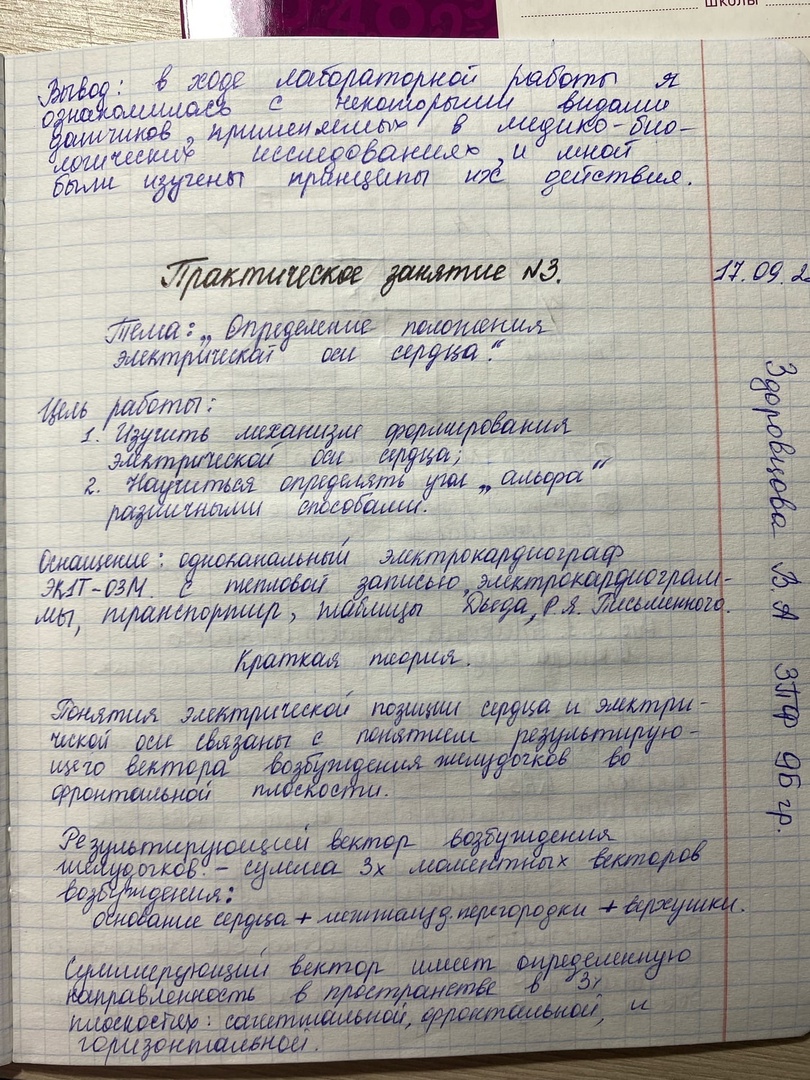 школы
Вывод: в ходе лабораторной работы я
ознакомилась с некоторыми видами
датчиков, применяемых в медико-био-
логических исследованиях, и мной
были изучены принципы их действия.
Практическое занятие №3.
17.09.2
Тема: „Определение положения
электрической оси сердца".
Цель работы:
1. Изучить механизм формирования
электрической оси сердца;
2. Научиться определять угол „альфа"
различными способами.
Оснащение: одноканальный электрокардиограф
ЭК1Т-03М с тепловой записью, электрокардиограм-
мы, транспортир, таблицы Дьеда, Р.Я. Письменного.
Краткая теория.
Понятия электрической позиции сердца и электри-
ческой оси связаны с понятием результирую-
щего вектора возбуждения желудочков во
фронтальной плоскости.
Результирующий вектор возбуждения
желудочков – сумма 3х моментных векторов
возбуждения:
основание сердца + межжелуд. перегородки + верхушки.
Суммирующий вектор имеет определенную
направленность в пространстве в 3х
плоскостях: сагиттальной, фронтальной, и
горизонтальной.
Здоровцова В.А ЗПФ 9Б гр.